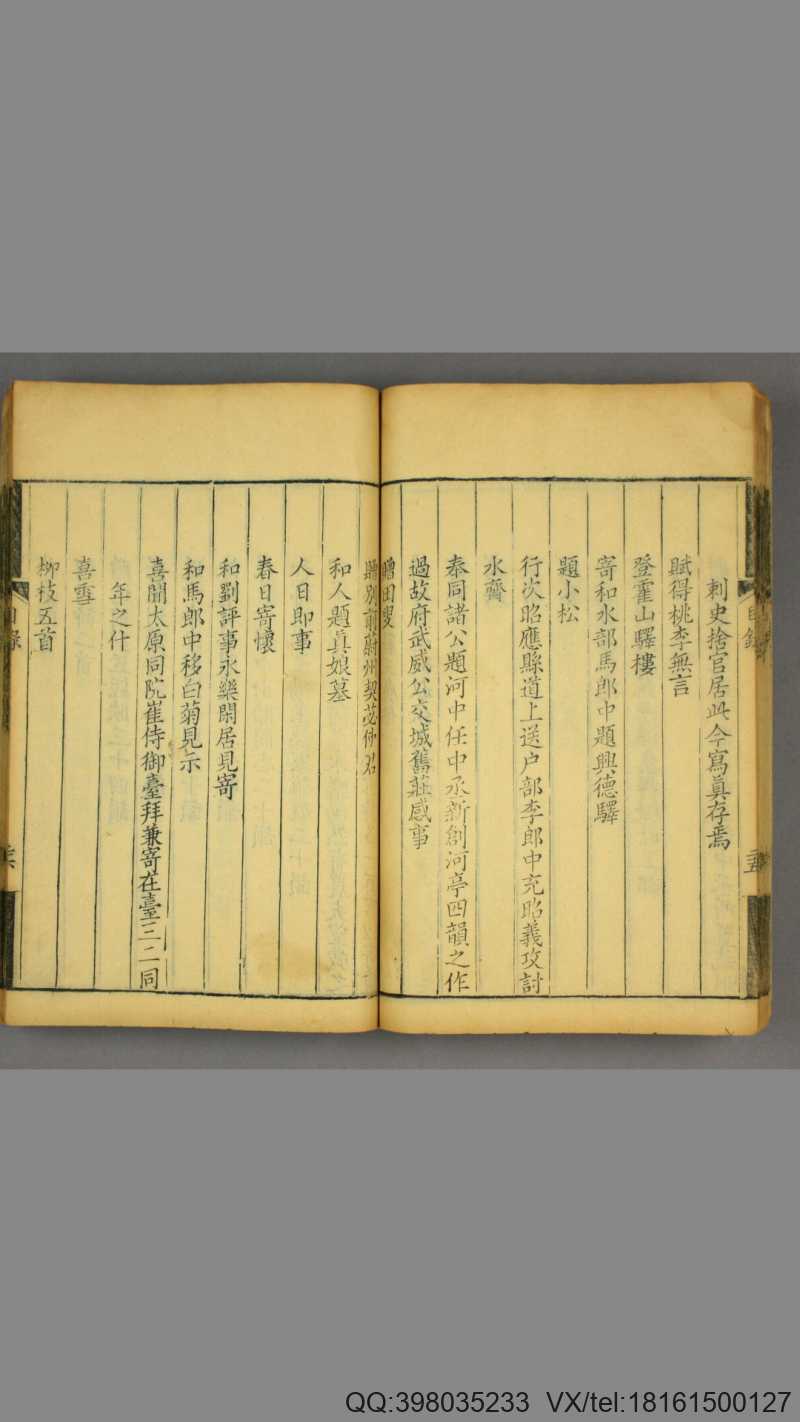 刺史捨官居此今寫眞存焉
賦得桃李無言
登霍山驛樓
寄和水部馬郎中題興德驛
題小松
行次昭應縣道上送户部李郎中充昭義攻討
水齋
奉同諸公題河中任中丞新創河亭四韻之作
過故府武威公交城舊莊感事
贈田叟
贈別前蔚州契苾使君
和人題真娘墓
人日即事
春日寄懷
和劉評事永樂閑居見寄
和馬郎中移白菊見示
喜聞太原同院崔侍御臺拜兼寄在臺三二同
年之什
喜雪
柳枝五首
目錄
QQ:398035233 VX/tel:18161500127